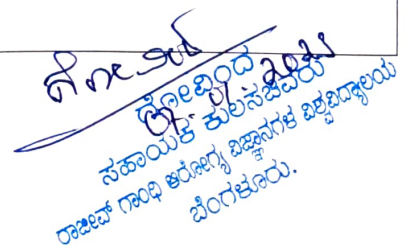 ಗೋವಿಂದ
ಸಹಾಯಕ ಕುಲಸಚಿವರು
ರಾಜೀವ್ ಗಾಂಧಿ ಆರೋಗ್ಯ ವಿಜ್ಞಾನಗಳ ವಿಶ್ವವಿದ್ಯಾಲಯ
ಬೆಂಗಳೂರು.